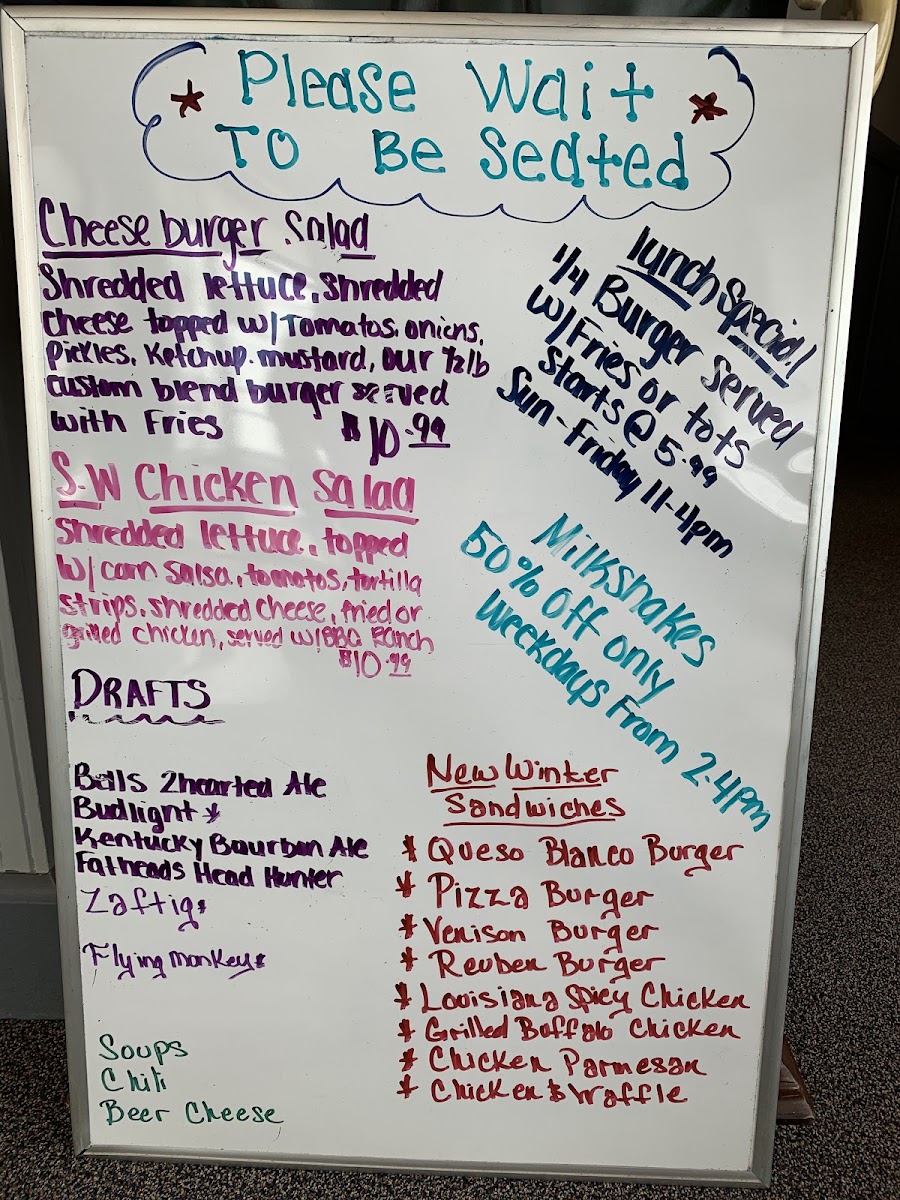 Please Wait
To Be Seated
Cheeseburger Salad
Shredded lettuce, shredded
cheese topped w/Tomatos, onions,
Pickles, Ketchup, mustard, our 1/2 lb
custom blend burger served
with Fries
$10.99
S.W Chicken Salad
Shredded lettuce, topped
w/ corn salsa, tomatos, tortilla
strips, shredded cheese, fried or
grilled chicken, served w/BBQ Ranch
$10.99
Lunch Special!
1/4 Burger served
w/Fries or tots
Starts @ 5.99
Sun-Friday 11-4pm
Milkshakes
50% off only
Weekdays From 2-4pm
DRAFTS
Bells 2hearted Ale
Budlight
Kentucky Bourbon Ale
Fatheads Head Hunter
Zaftig
Flying monkeys
Soups
Chili
Beer Cheese
New Winter
Sandwiches
* Queso Blanco Burger
* Pizza Burger
* Venison Burger
* Reuben Burger
* Louisiana Spicy Chicken
* Grilled Buffalo Chicken
* Chicken Parmesan
* Chicken & Waffle